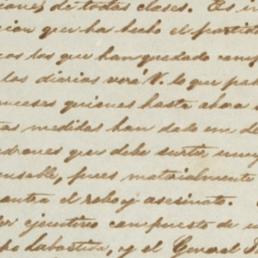 iones de todas clases. Es in
cion que ha hecho el partido
cos los que han quedado com
los diarios verá V. lo que pas
nceses quienes hasta ahora s
tas medidas han dado un de
drones que debe surtir muy
ensable, pues materialmente
contra el robo y asesinato.
er ejecutivo compuesto de u
Labastida, y el General